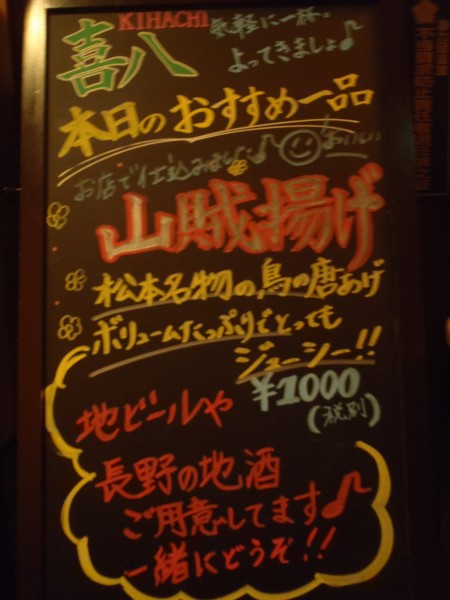 KIHACHI
喜八
気軽に一杯。
よってきましょ♪
本日のおすすめ一品
お店で仕込みまし
おいしい
山賊揚げ
松本名物の鳥の唐あげ
ボリュームたっぷりでとっても
ジューシー!!
¥1000
(税別)
地ビールや
長野の地酒
ご用意してます♪
一緒にどうぞ!!